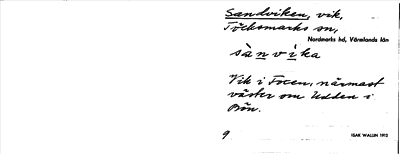 Sandviken, vik,
Töcksmarks sn,
Nordmarks hd, Värmlands län
sànvika
Vik i Foxen, närmast
väster om Udden i
Bön.
9
ISAK WALLIN 1913